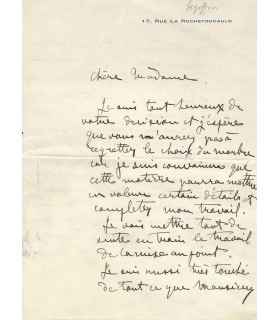 Segoffin
17, RUE LA ROCHEFOUCAULD
Chère Madame.
Je suis tout heureux de
votre décision et j'espère
que vous n'aurez pas à
regretter le choix du marbre
car je suis convaincu que
cette matière pourra mettre
en valeur certains détails et
complèter mon travail.
Je vais mettre tout de
suite en train le travail
de la mise au point.
Je suis aussi très touché
de tout ce que Monsieur